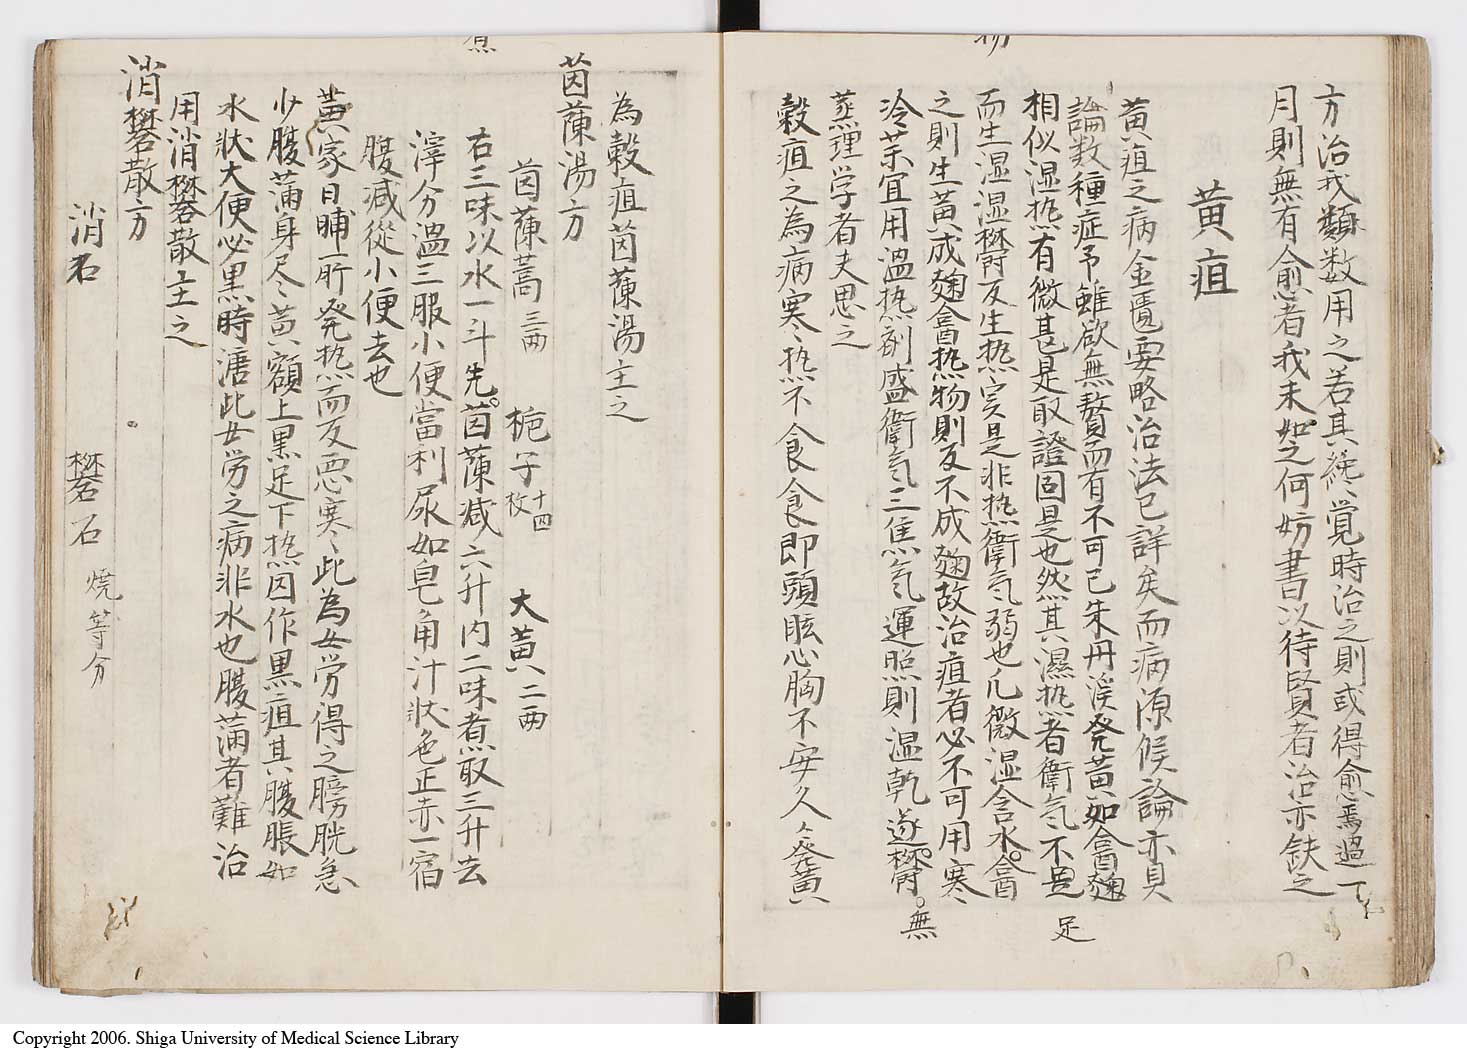 方治我類数用之若其纔覚時治之則或得愈焉過一
月則無有愈者我未如之何妨書以待賢者治亦鈌之
黄疸
黄疸之病金匱要略治法已詳矣而病源候論亦具
論数種症予雖欲無贅而有不可已朱丹溪発黄如盦麹
相似湿热有微甚是取證固是也然其濕热者衛気不足
而生湿湿欝反生热実是非热衛気弱也凡微湿含水盦
之則生黄成麹盦热物則反不成麹故治疸者必不可用寒
冷芩宜用温热剤盛衛気三焦気運照則湿乾遂欝無
蒸理学者夫思之
穀疸之為病寒热不食食即頭眩心胸不安久久発黄
為穀疸茵蔯湯主之
茵蔯湯方
茵蔯蒿三両 梔子十四枚 大黄二両
右三味以水一斗先茵蔯減六升内二味煮取三升去
煮
滓分温三服小便當利尿如皂角汁状色正赤一宿
腹減従小便去也
黄家日晡所発热而反悪寒此為女労得之膀胱急
少腹満身尽黄額上黒足下热因作黒疸其腹脹如
水状大便必黒時溏此女労之病非水也腹満者難治
用消礬散主之
消礬散方
消石 礬石 焼等分
Copyright 2006. Shiga University of Medical Science Library